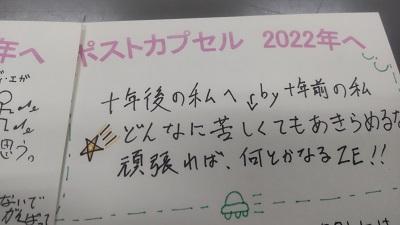 年へ
ポストカプセル 2022年へ
十年後の私へ by十年前の私
どんなに苦しくてもあきらめるな
頑張れば、何とかなるZE!!
思う。
ないで
がんばって